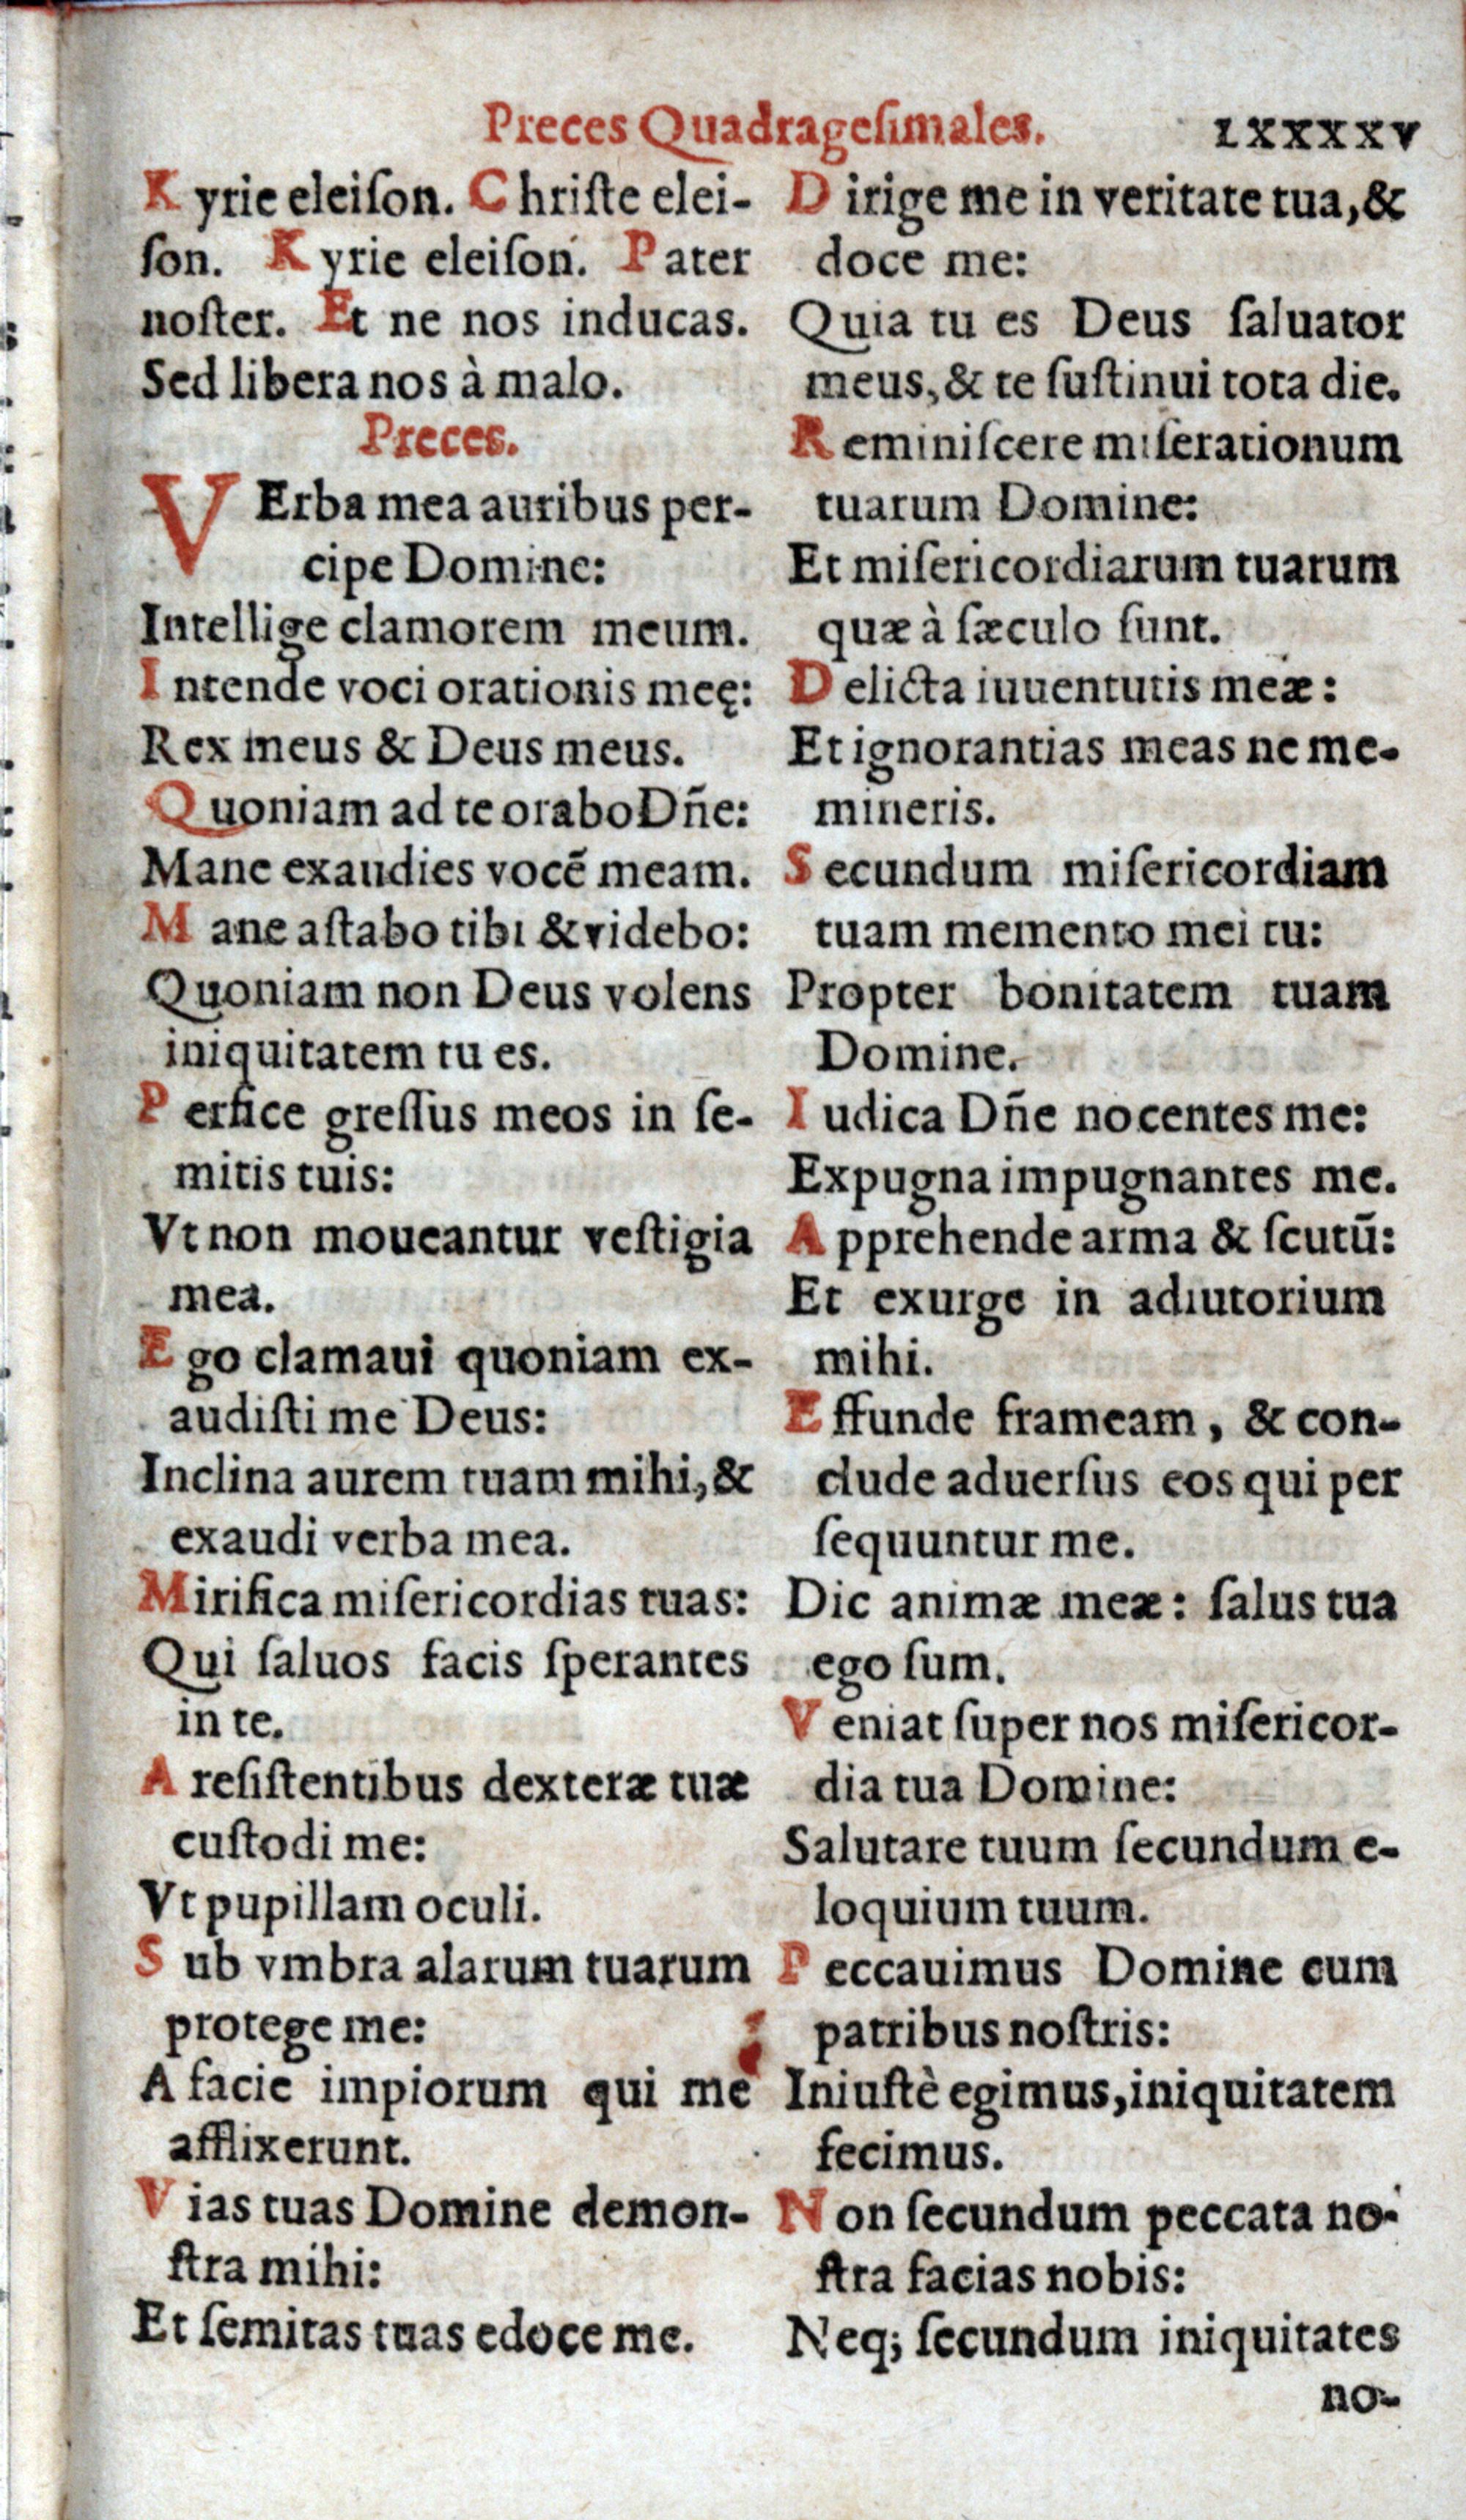 Preces Quadrageſimales. LXXXXV
Kyrie eleiſon. Chriſte elei-
ſon. Kyrie eleiſon. Pater
noſter. Et ne nos inducas.
Sed libera nos à malo.
Preces.
VErba mea auribus per-
cipe Domine:
Intellige clamorem meum.
Intende voci orationis meę:
Rex meus & Deus meus.
Quoniam ad te orabo Dñe:
Mane exaudies vocē meam.
Mane aſtabo tibi & videbo:
Quoniam non Deus volens
iniquitatem tu es.
Perfice greſſus meos in ſe-
mitis tuis:
Vt non moueantur veſtigia
mea.
Ego clamaui quoniam ex-
audiſti me Deus:
Inclina aurem tuam mihi, &
exaudi verba mea.
Mirifica miſericordias tuas:
Qui ſaluos facis ſperantes
in te.
A reſiſtentibus dexteræ tuæ
cuſtodi me:
Vt pupillam oculi.
Sub vmbra alarum tuarum
protege me:
A facie impiorum qui me
afflixerunt.
Vias tuas Domine demon-
ſtra mihi:
Et ſemitas tuas edoce me.
Dirige me in veritate tua, &
doce me:
Quia tu es Deus ſaluator
meus, & te ſuſtinui tota die.
Reminiſcere miſerationum
tuarum Domine:
Et miſericordiarum tuarum
quæ à ſæculo ſunt.
Delicta iuuentutis meæ:
Et ignorantias meas ne me-
mineris.
Secundum miſericordiam
tuam memento mei tu:
Propter bonitatem tuam
Domine.
Iudica Dñe nocentes me:
Expugna impugnantes me.
Apprehende arma & ſcutū:
Et exurge in adiutorium
mihi.
Effunde frameam, & con-
clude aduerſus eos qui per
ſequuntur me.
Dic animæ meæ: ſalus tua
ego ſum.
Veniat ſuper nos miſericor-
dia tua Domine:
Salutare tuum ſecundum e-
loquium tuum.
Peccauimus Domine cum
patribus noſtris:
Iniuſtè egimus, iniquitatem
fecimus.
Non ſecundum peccata no-
ſtra facias nobis:
Neq; ſecundum iniquitates
no-